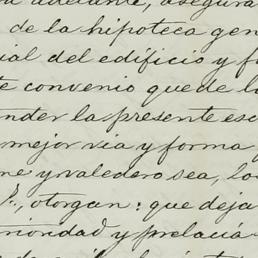 adelante, asegura
de la hipoteca gen
ial del edificio y f
te convenio quede l
nder la presente esc
mejor via y forma
me y valedero sea, lo
otorgan: que deja
rioridad y prelacia